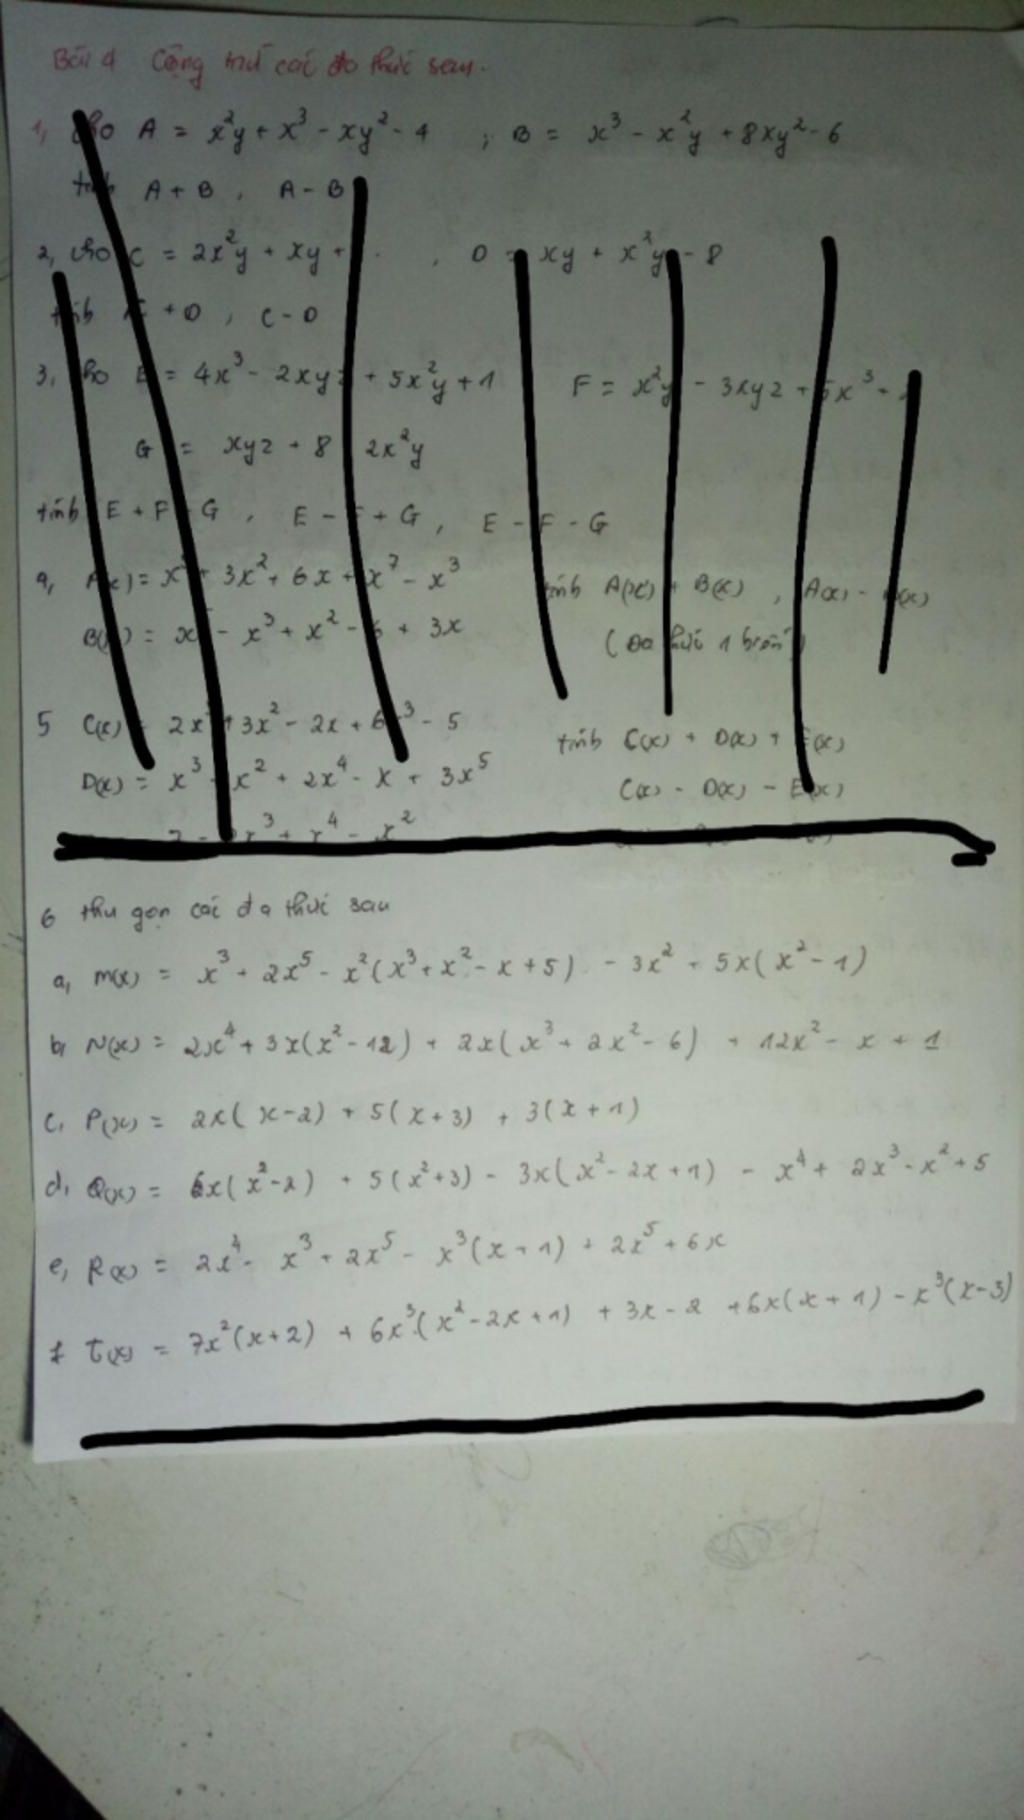 Bài 4 Cộng trừ các đa thức sau.
1, cho A = x²y + x³ - xy² - 4 ; B = x³ - x²y + 8xy² - 6
tính A + B , A - B
2, cho C = 2x²y + xy + , D = xy + x²y - 8
tính + D , C - D
3, cho E = 4x³ - 2xyz + 5x²y + 1 F = x²y - 3xyz + 5x³ -
G = xyz + 8 2x²y
tính E + F G , E - F + G , E - F - G
4, A(x) = + 3x² + 6x + x⁷ - x³ tính A(x) + B(x) , A(x) - B(x)
B(x) = - x³ + x² - 6 + 3x (Đa thức 1 biến)
5 C(x) 2x + 3x² - 2x + 6x³ - 5 tính C(x) + D(x) + E(x)
D(x) = x³ x² + 2x⁴ - x + 3x⁵ C(x) - D(x) - E(x)
x³ + x⁴ - x²
6 thu gọn các đa thức sau
a, M(x) = x³ + 2x⁵ - x²(x³ + x² - x + 5) - 3x² + 5x(x² - 1)
b, N(x) = 2x⁴ + 3x(x² - 12) + 2x(x³ + 2x² - 6) + 12x² - x + 1
c, P(x) = 2x(x - 2) + 5(x + 3) + 3(x + 1)
d, Q(x) = 6x(x² - 2) + 5(x² + 3) - 3x(x² - 2x + 1) - x⁴ + 2x³ - x² + 5
e, R(x) = 2x⁴ - x³ + 2x⁵ - x³(x + 1) + 2x⁵ + 6x
f T(x) = 7x²(x + 2) + 6x³(x² - 2x + 1) + 3x - 2 + 6x(x + 1) - x³(x - 3)